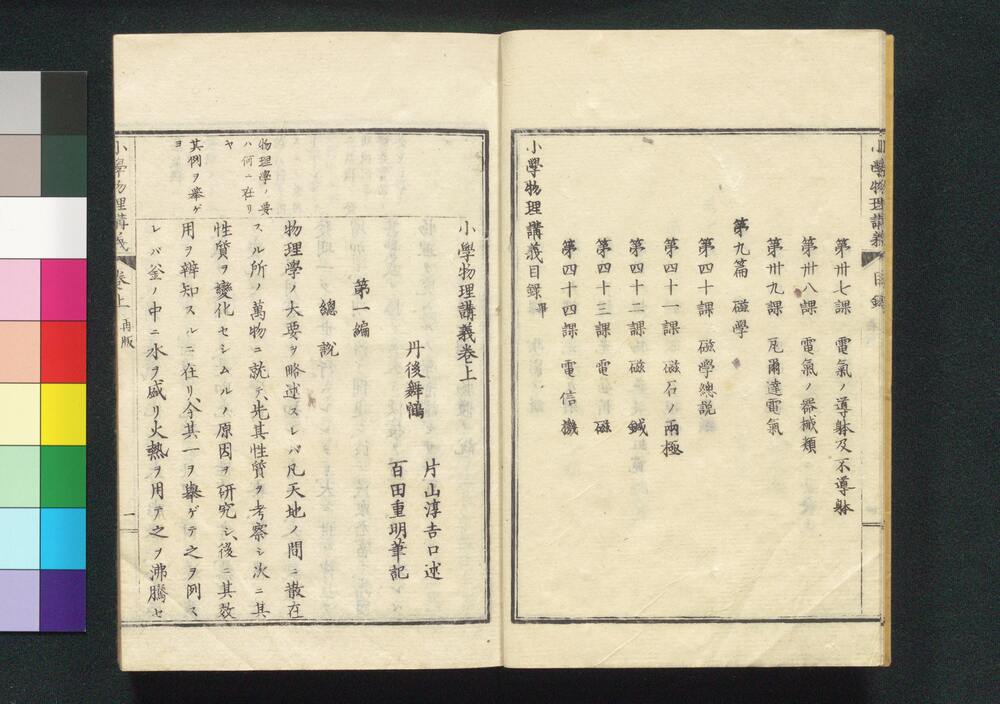 小學物理講義 目錄
第卅七課 電氣ノ導躰及不導躰
第卅八課 電氣ノ器械類
第卅九課 瓦爾達電氣
第九篇 磁學
第四十課 磁學總説
第四十一課 磁石ノ兩極
第四十二課 磁鍼
第四十三課 電磁
第四十四課 電信機
小學物理講義目録畢
小學物理講義卷上
丹後舞鶴 片山淳吉口述
百田重明筆記
第一編
總説
物理學ノ要
ハ何ニ在リ
ヤ
其例ヲ擧ゲ
ヨ
物理學ノ大要ヲ略述スレバ凡天地ノ間ニ散在
スル所ノ萬物ニ就テ、先其性質ヲ考察シ次ニ其
性質ヲ變化セシムルノ原因ヲ研究シ、後ニ其效
用ヲ辨知スルニ在リ、今其一ヲ擧ゲテ之ヲ例ス
レバ釜ノ中ニ水ヲ盛リ火熱ヲ用テ之ヲ沸騰セ
小學物理講義 卷上 再版 一